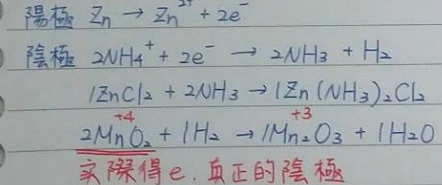 陽極 Zn → Zn²⁺ + 2e⁻
陰極 2NH₄⁺ + 2e⁻ → 2NH₃ + H₂
1ZnCl₂ + 2NH₃ → 1Zn(NH₃)₂Cl₂
+4 +3
2MnO₂ + 1H₂ → 1Mn₂O₃ + 1H₂O
实際得e. 真正的陰極